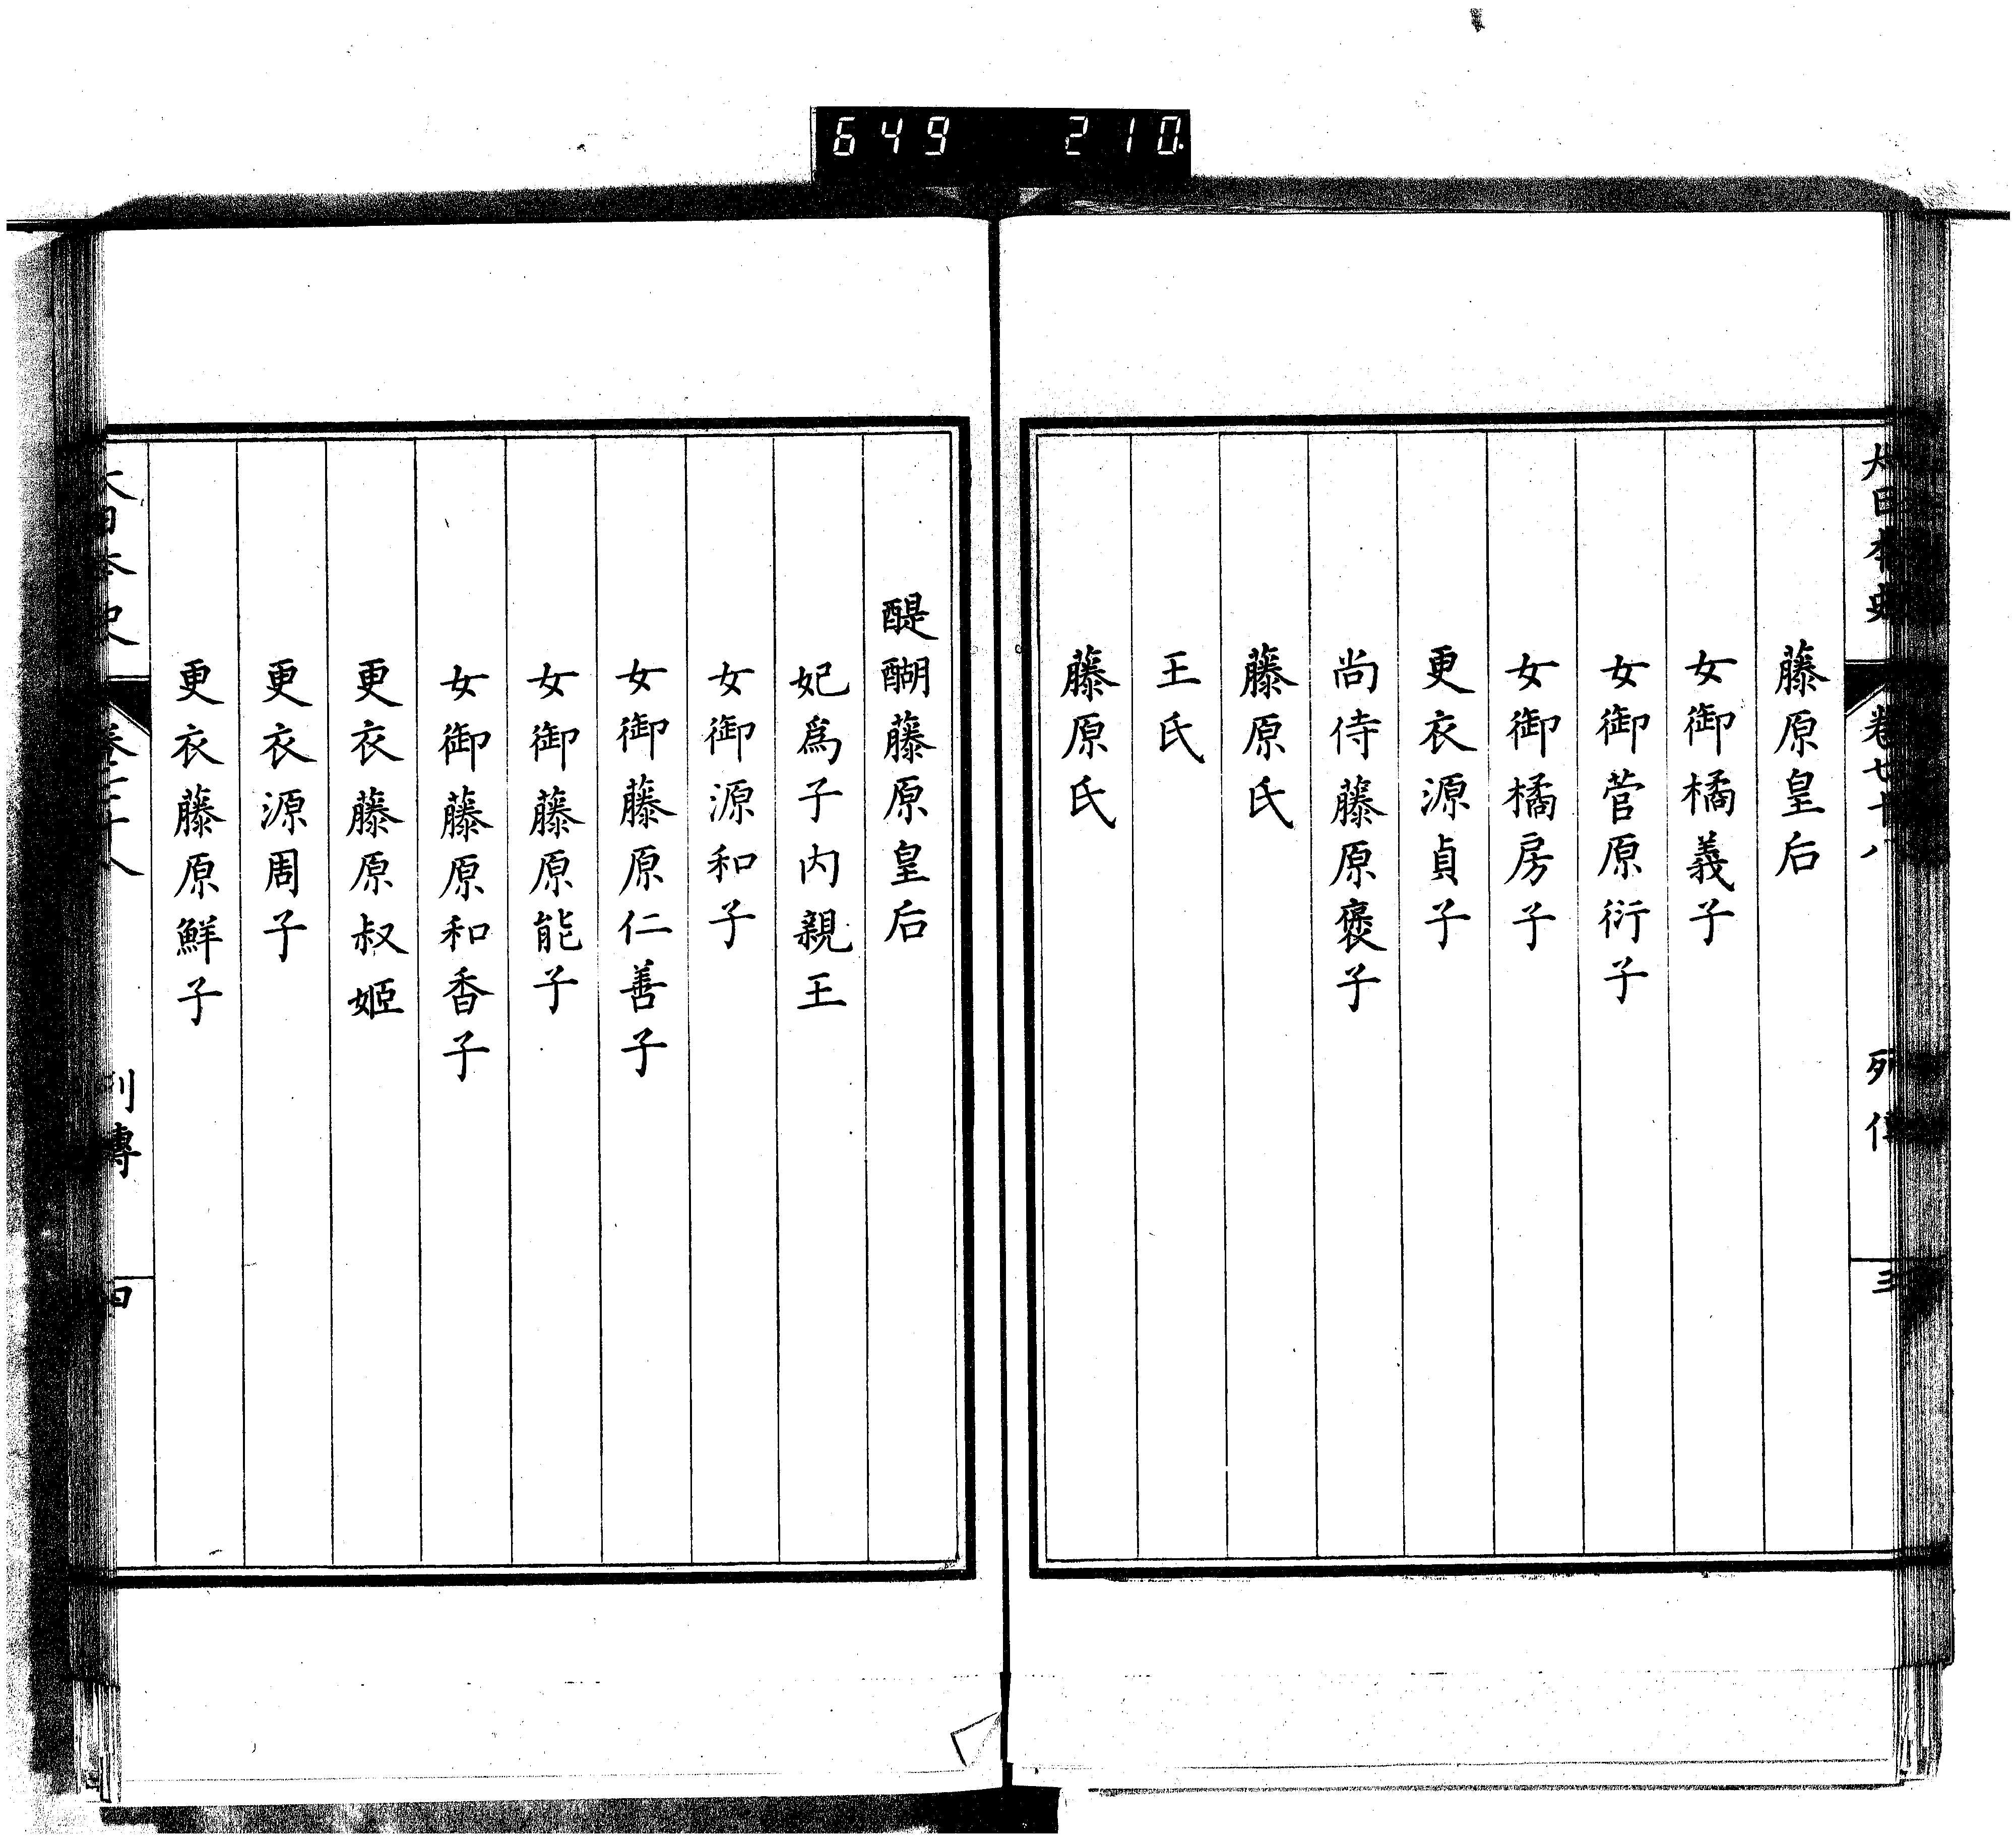 649 210
大日本史 卷七十八 列傳 三
藤原皇后
女御橘義子
女御菅原衍子
女御橘房子
更衣源貞子
尚侍藤原褒子
藤原氏
王氏
藤原氏
醍醐藤原皇后
妃爲子内親王
女御源和子
女御藤原仁善子
女御藤原能子
女御藤原和香子
更衣藤原叔姬
更衣源周子
更衣藤原鮮子
大日本史 卷七十八 列傳 四